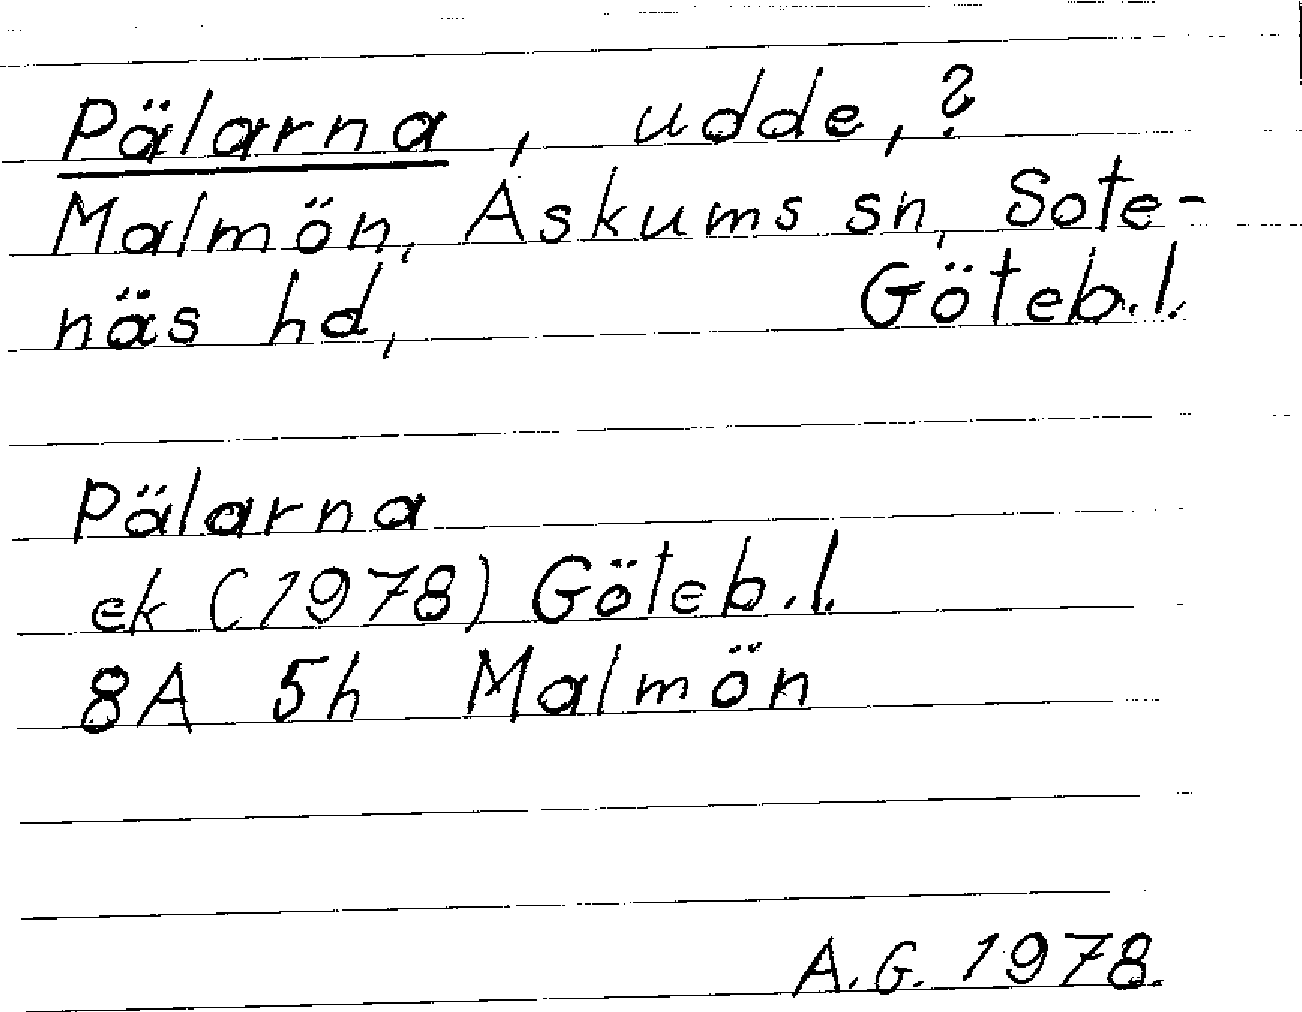 Pälarna, udde,?
Malmön, Askums sn, Sote-
näs hd, Göteb.l.
Pälarna
ek (1978) Göteb.l.
8A 5h Malmön
A.G. 1978.